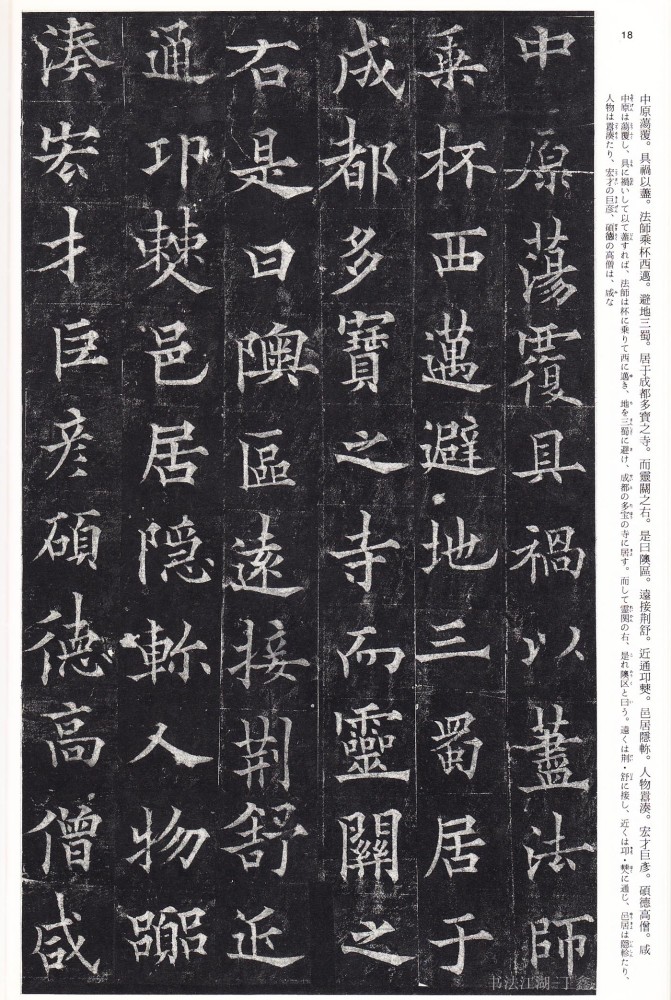 18
中原蕩覆。具禍以藎。法師乘杯西邁。避地三蜀。居于成都多寶之寺。而靈關之右。是曰隩區。遠接荆舒。近通卭僰。邑居隱軫。人物嚻湊。宏才巨彦。碩德高僧。咸
中原は蕩覆し、具に禍いして以て藎すれば、法師は杯に乗りて西に邁き、地を三蜀に避け、成都の多宝の寺に居す。而して霊関の右、是れ隩区と曰う。遠くは荆・舒に接し、近くは卭・僰に通じ、邑居は隠軫たり、
人物は嚻湊たり、宏才の巨彦、碩徳の高僧は、咸な
中原蕩覆具禍以藎法師
乗杯西邁避地三蜀居于
成都多寶之寺而靈關之
右是曰隩區遠接荆舒近
通卭僰邑居隠軫人物嚻
湊宏才巨彦碩德高僧咸
书法江湖 丁鑫